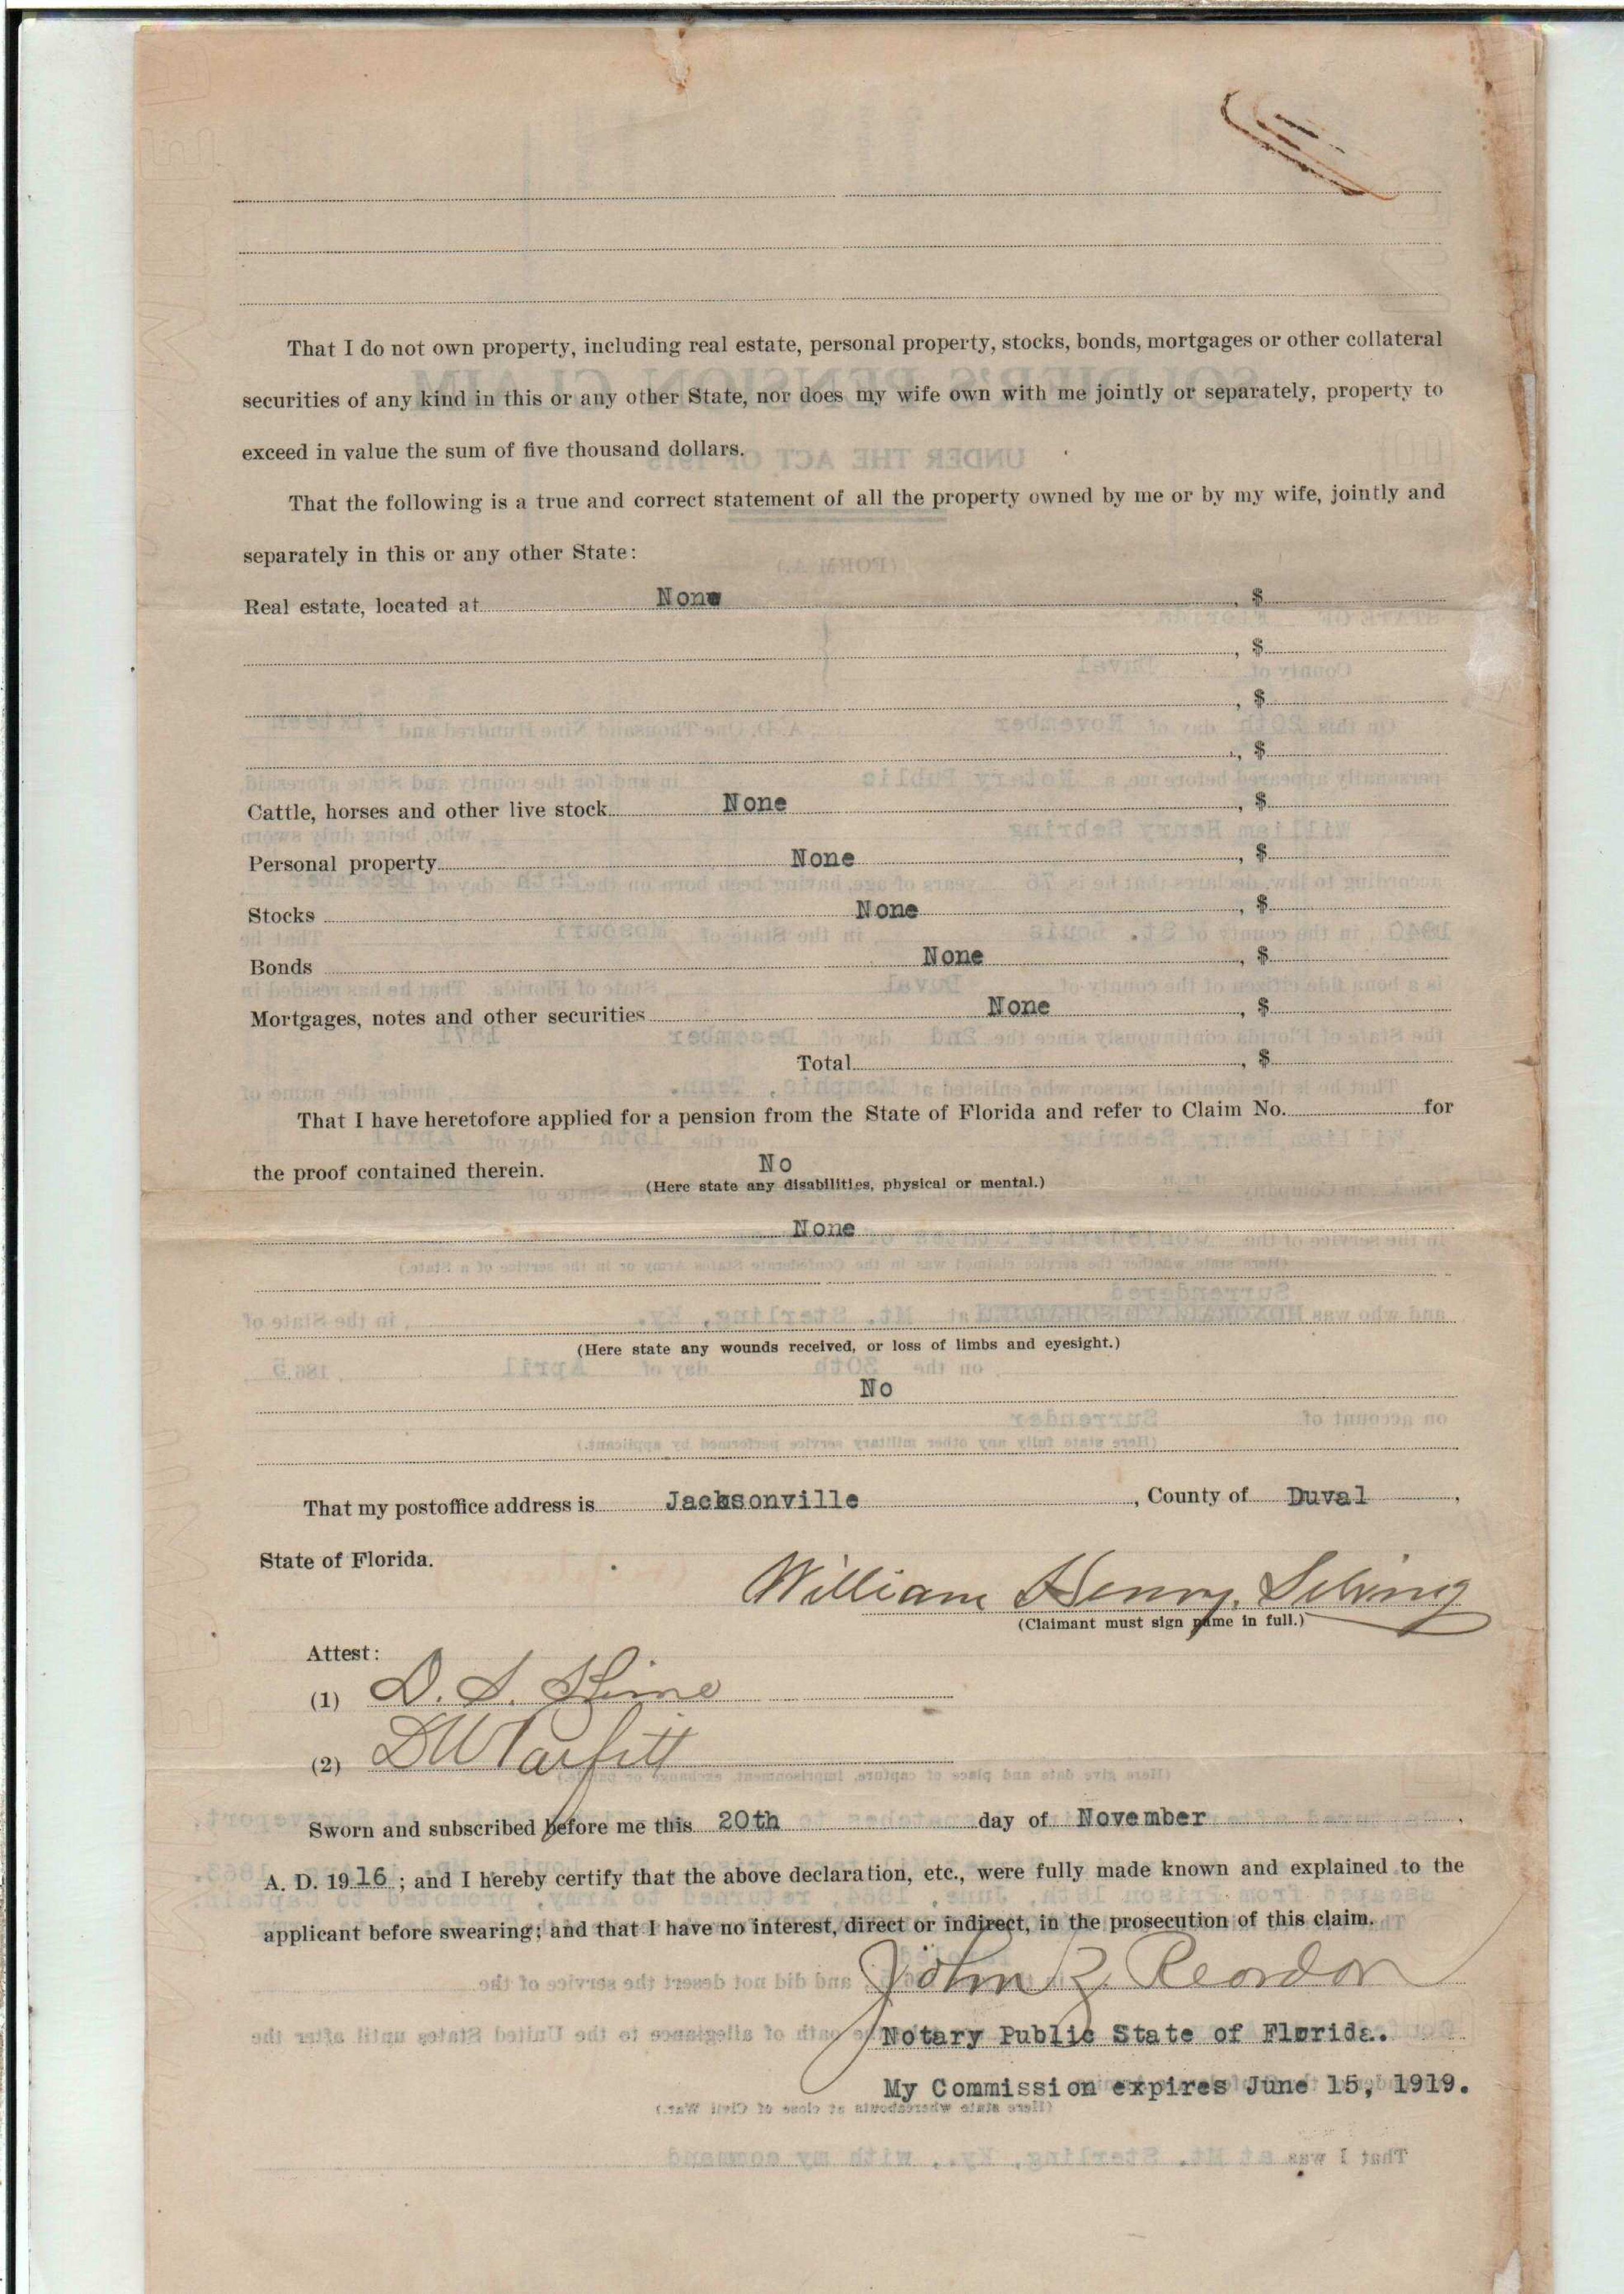 That I do not own property, including real estate, personal property, stocks, bonds, mortgages or other collateral
securities of any kind in this or any other State, nor does my wife own with me jointly or separately, property to
exceed in value the sum of five thousand dollars.
That the following is a true and correct statement of all the property owned by me or by my wife, jointly and
separately in this or any other State:
Real estate, located at None , $
, $
, $
, $
Cattle, horses and other live stock None , $
Personal property None , $
Stocks None , $
Bonds None , $
Mortgages, notes and other securities None , $
Total , $
That I have heretofore applied for a pension from the State of Florida and refer to Claim No. for
the proof contained therein. No
(Here state any disabilities, physical or mental.)
None
(Here state any wounds received, or loss of limbs and eyesight.)
No
That my postoffice address is Jacksonville , County of Duval ,
State of Florida.
William Henry Sebring
(Claimant must sign name in full.)
Attest:
(1) D. S.
(2)
Sworn and subscribed before me this 20th day of November ,
A. D. 1916 ; and I hereby certify that the above declaration, etc., were fully made known and explained to the
applicant before swearing; and that I have no interest, direct or indirect, in the prosecution of this claim.
John Reardon
Notary Public State of Florida.
My Commission expires June 15, 1919.